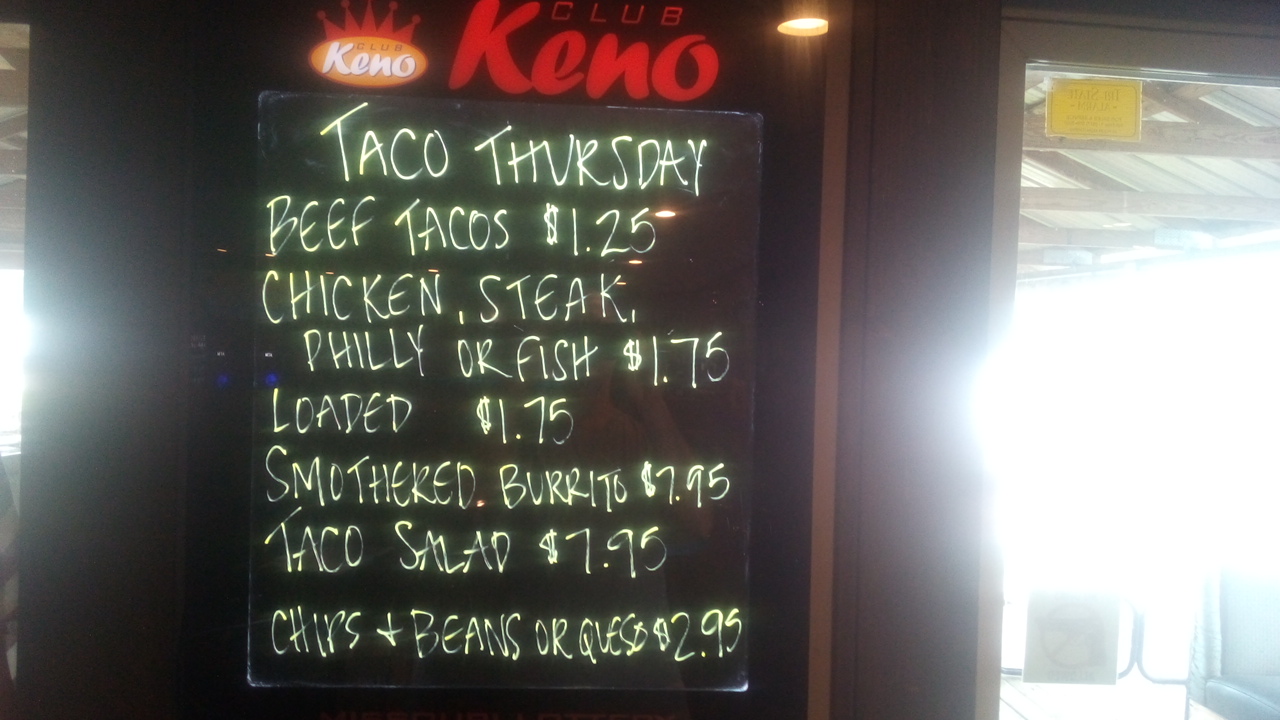 CLUB
Keno
CLUB
Keno
TACO THURSDAY
BEEF TACOS $1.25
CHICKEN, STEAK,
PHILLY OR FISH $1.75
LOADED $1.75
SMOTHERED BURRITO $7.95
TACO SALAD $7.95
CHIPS + BEANS OR QUESO $2.95
MISSOURI LOTTERY